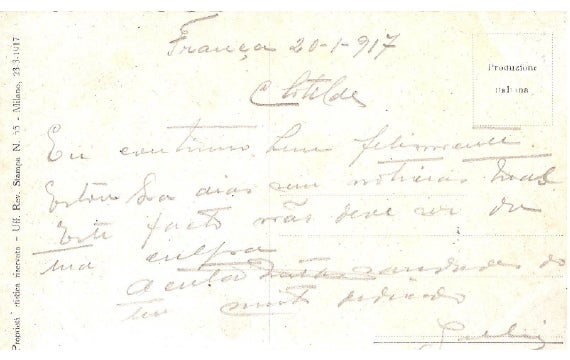 França 20-1-917
Clotilde
Eu continuo bem felizmente.
Estou ha dias sem noticias tuas
Este facto não deve ser da
tua culpa
Aceita saudades do
teu muito dedicado
Produzione
italiana
Proprietà artistica riservata - Uff. Rev. Stampa N. 55 - Milano, 23-3-1917